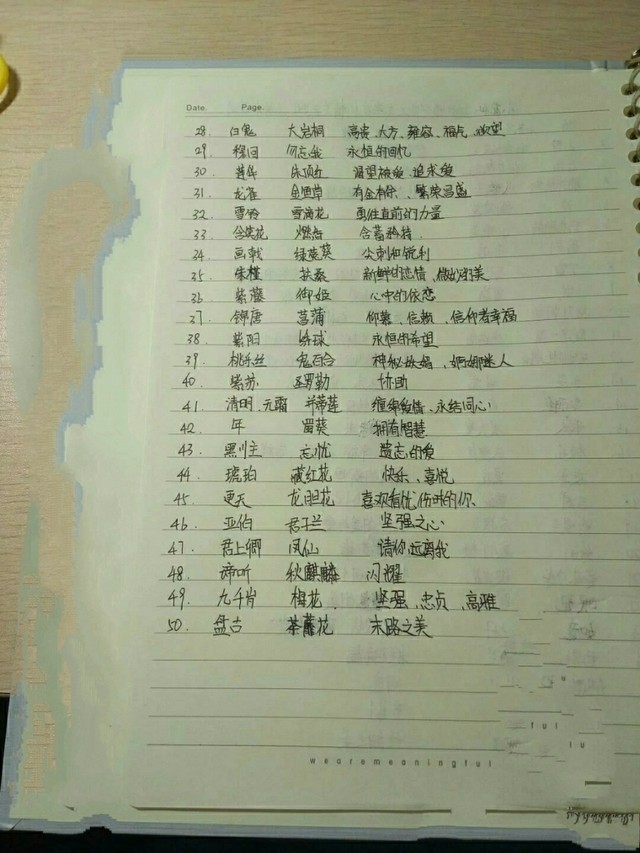 Date. Page.
28. 白鬼 大岩桐 高贵、大方、雍容、福气、欲望
29. 穆囙 勿忘我 永恒的回忆
30. 莲华 朱顶红 渴望被爱、追求爱
31. 龙雀 金鱼草 有金有余、繁荣昌盛
32. 雪铃 雪滴花 勇往直前的力量
33. 含笑花 含蓄矜持
34. 画戟 绿 尖刺和锐利
35. 朱槿 扶桑 新鲜的恋情、微妙的美
36. 紫藤 御姬 心中的依恋
37. 锦唐 菖蒲 仰慕、信赖、信仰者幸福
38 紫阳 绣球 永恒的希望
39. 桃乐丝 鬼百合 神秘妖娆、婀娜迷人
40. 紫苏 罗勒 协助
41. 清明、元霜 并蒂莲 缠绵爱情、永结同心
42. 年 蜀葵 拥有智慧
43. 黑川主 忘忧 遗忘的爱
44. 琥珀 藏红花 快乐、喜悦
45. 更天 龙胆花 喜欢看忧伤时的你
46. 亚伯 君子兰 坚强之心
47. 君上卿 凤仙 请你远离我
48. 谛听 秋麒麟 闪耀
49. 九千肖 梅花、 坚强、忠贞、高雅
50. 盘古 荼蘼花 末路之美
wearemeaningful